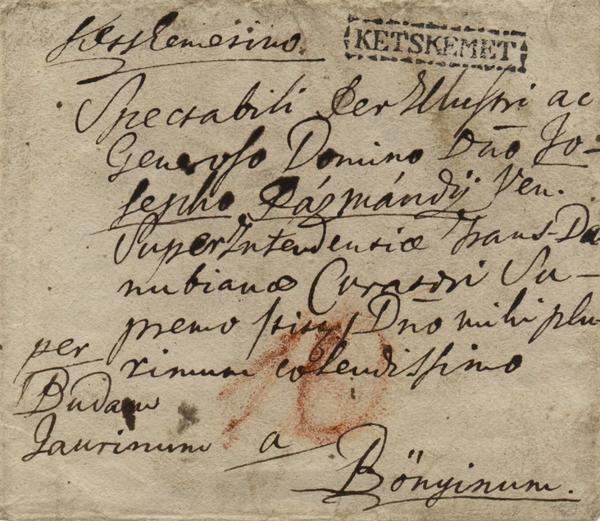 Kesskemesino.
KETSKEMET
Spectabili Per Illustri ac
Generoso Domino Dño Jo-
sepho Pázmándÿ Ven.
SuperIntendensiæ Trans-Da
nubianæ Curatori Su-
premo Dño mihi plu-
rimum colendissimo
per
Budam
Jaurinum a
Bönyinum.
10